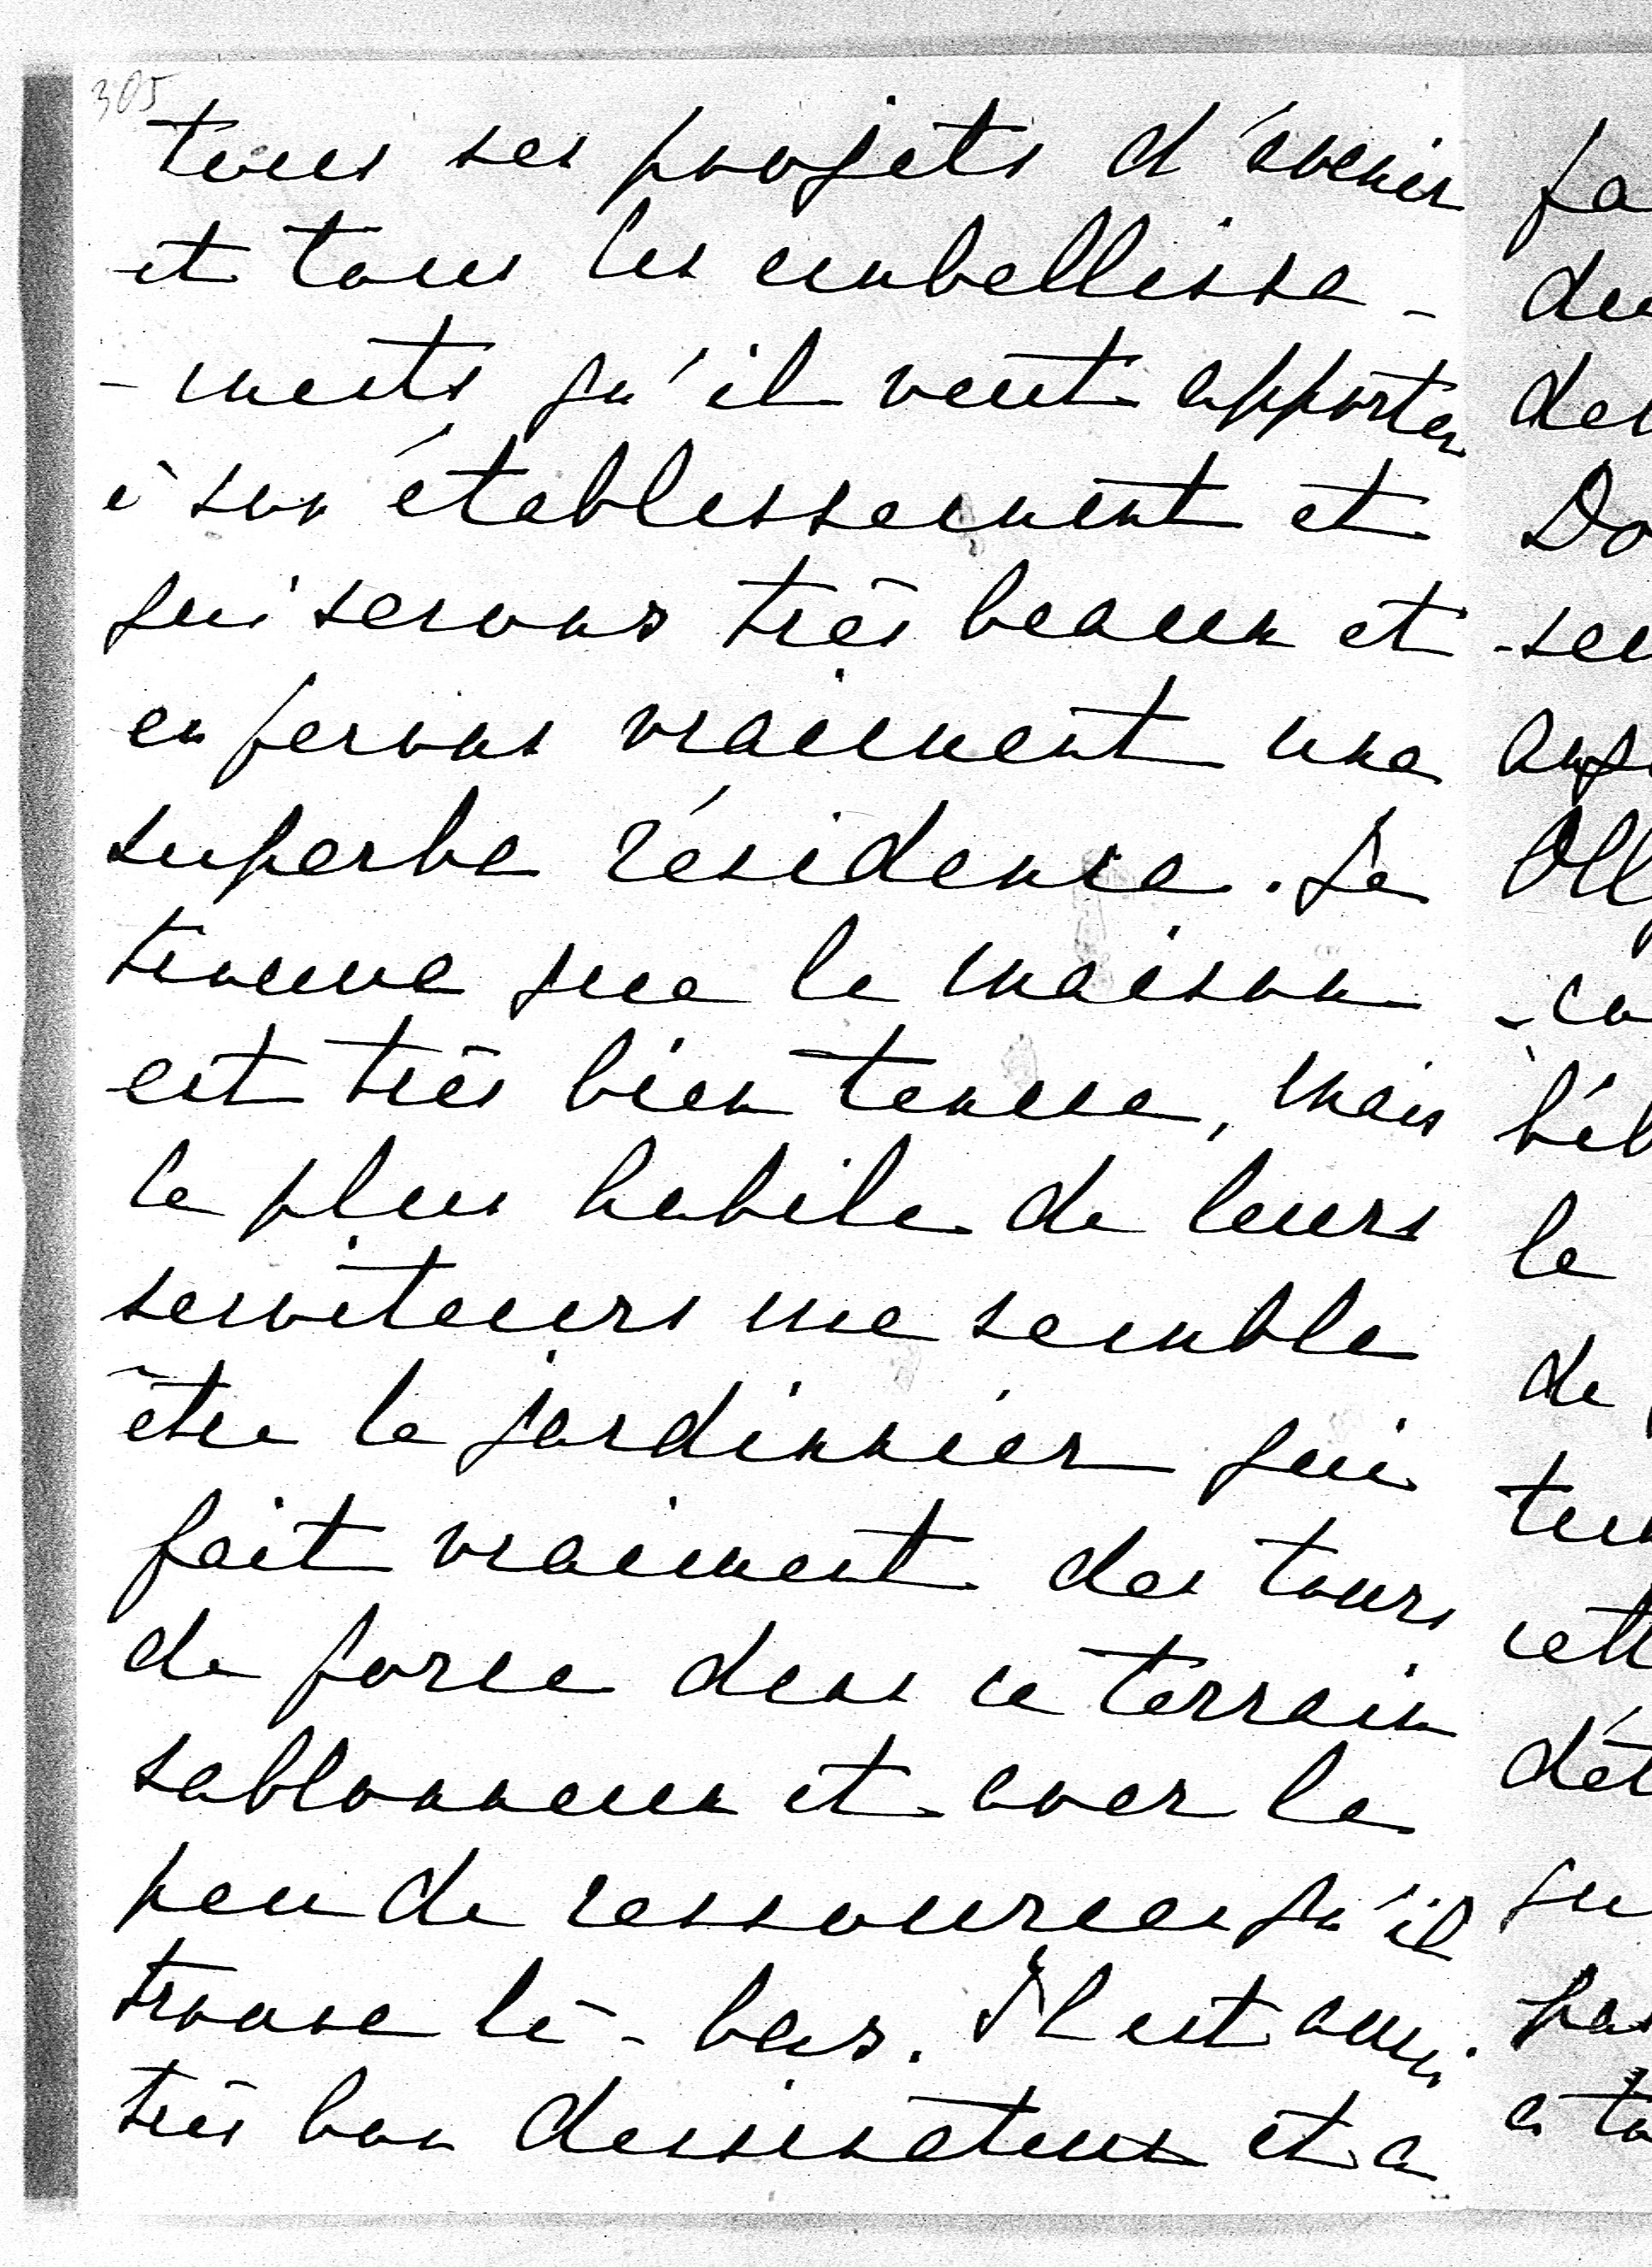 305
tous ses projets d'avenir
et tous les embellisse-
-ments qu'il veut apporter
à son établissement et
qui serons très beaux et
en ferons vraiment une
superbe résidence. Je
trouve que la maison
est très bien tenue, mais
le plus habile de leurs
serviteurs me semble
être le jardinnier qui
fait vraiment des tours
de force dans ce terrain
sablonneux et avec le
peu de ressources qu'il
trouve là-bas. Il est aussi
très bon dessinateur et a
fa
de
Do
le
de